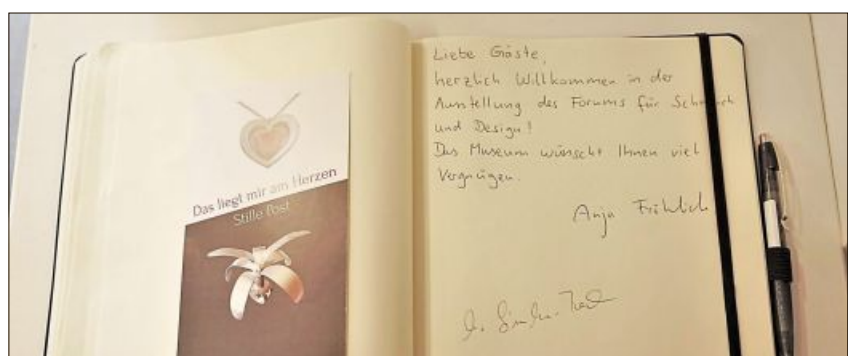 Das liegt mir am Herzen
Stille Post
Liebe Gäste,
herzlich Willkommen in der
Ausstellung des Forums für
und Design!
Das Museum wünscht Ihnen viel
Vergnügen.
Anja Fröhlich